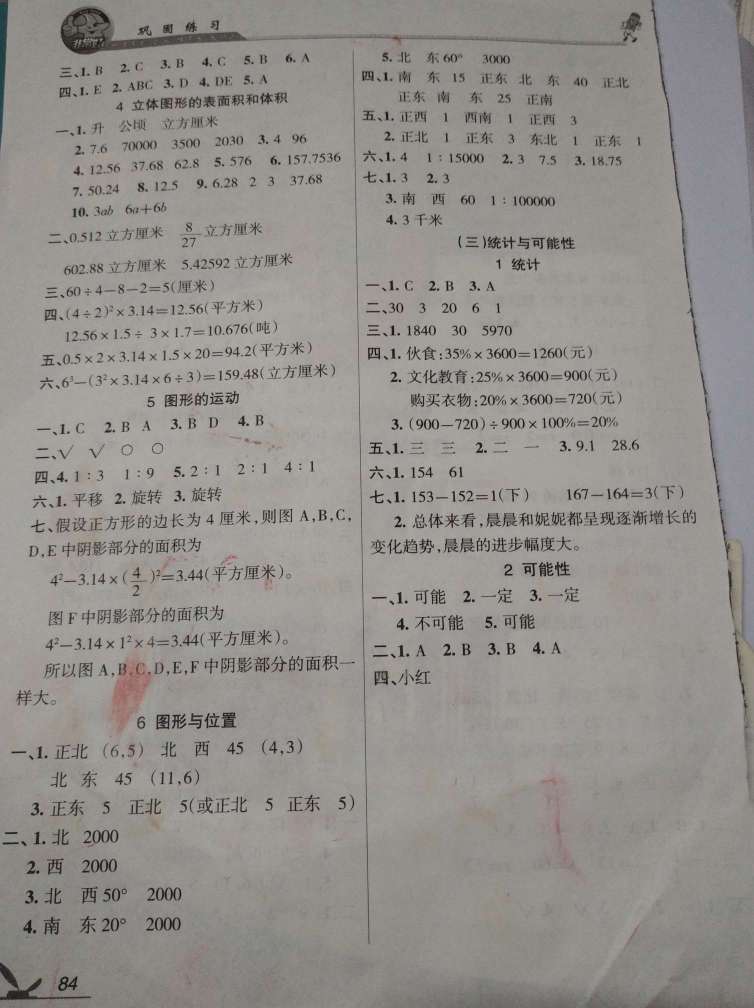 巩固练习
三、1. B 2. C 3. B 4. C 5. B 6. A
四、1. E 2. ABC 3. D 4. DE 5. A
4 立体图形的表面积和体积
一、1. 升 公顷 立方厘米
2. 7.6 70000 3500 2030 3. 4 96
4. 12.56 37.68 62.8 5. 576 6. 157.7536
7. 50.24 8. 12.5 9. 6.28 2 3 37.68
10. 3ab 6a+6b
二、0.512 立方厘米 8/27 立方厘米
602.88 立方厘米 5.42592 立方厘米
三、60÷4-8-2=5(厘米)
四、(4÷2)²×3.14=12.56(平方米)
12.56×1.5÷3×1.7=10.676(吨)
五、0.5×2×3.14×1.5×20=94.2(平方米)
六、6³-(3²×3.14×6÷3)=159.48(立方厘米)
5 图形的运动
一、1. C 2. B A 3. B D 4. B
二、√ √ ○ ○
四、4. 1∶3 1∶9 5. 2∶1 2∶1 4∶1
六、1. 平移 2. 旋转 3. 旋转
七、假设正方形的边长为 4 厘米,则图 A,B,C,
D,E 中阴影部分的面积为
4²-3.14×(4/2)²=3.44(平方厘米)。
图 F 中阴影部分的面积为
4²-3.14×1²×4=3.44(平方厘米)。
所以图 A,B,C,D,E,F 中阴影部分的面积一
样大。
6 图形与位置
一、1. 正北 (6,5) 北 西 45 (4,3)
北 东 45 (11,6)
3. 正东 5 正北 5(或正北 5 正东 5)
二、1. 北 2000
2. 西 2000
3. 北 西 50° 2000
4. 南 东 20° 2000
84
5. 北 东 60° 3000
四、1. 南 东 15 正东 北 东 40 正北
正东 南 东 25 正南
五、1. 正西 1 西南 1 正西 3
2. 正北 1 正东 3 东北 1 正东 1
六、1. 4 1∶15000 2. 3 7.5 3. 18.75
七、1. 3 2. 3
3. 南 西 60 1∶100000
4. 3 千米
(三)统计与可能性
1 统计
一、1. C 2. B 3. A
二、30 3 20 6 1
三、1. 1840 30 5970
四、1. 伙食:35%×3600=1260(元)
2. 文化教育:25%×3600=900(元)
购买衣物:20%×3600=720(元)
3. (900-720)÷900×100%=20%
五、1. 三 三 2. 二 一 3. 9.1 28.6
六、1. 154 61
七、1. 153-152=1(下) 167-164=3(下)
2. 总体来看,晨晨和妮妮都呈现逐渐增长的
变化趋势,晨晨的进步幅度大。
2 可能性
一、1. 可能 2. 一定 3. 一定
4. 不可能 5. 可能
二、1. A 2. B 3. B 4. A
四、小红